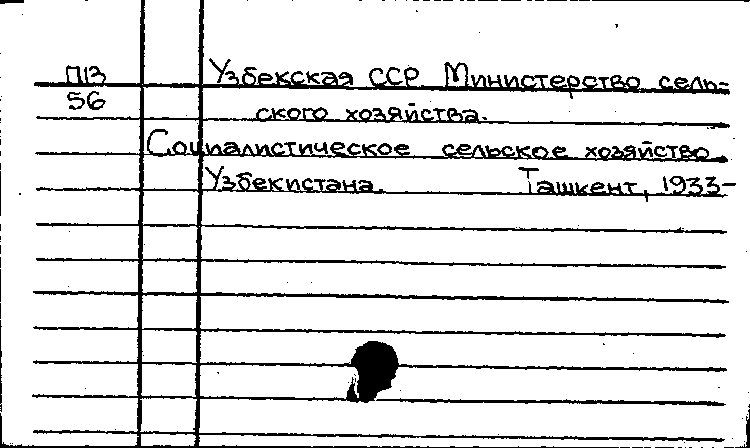 П13 Узбекская ССР Министерство сель-
56 ского хозяйства.
Социалистическое сельское хозяйство
Узбекистана. Ташкент, 1933-